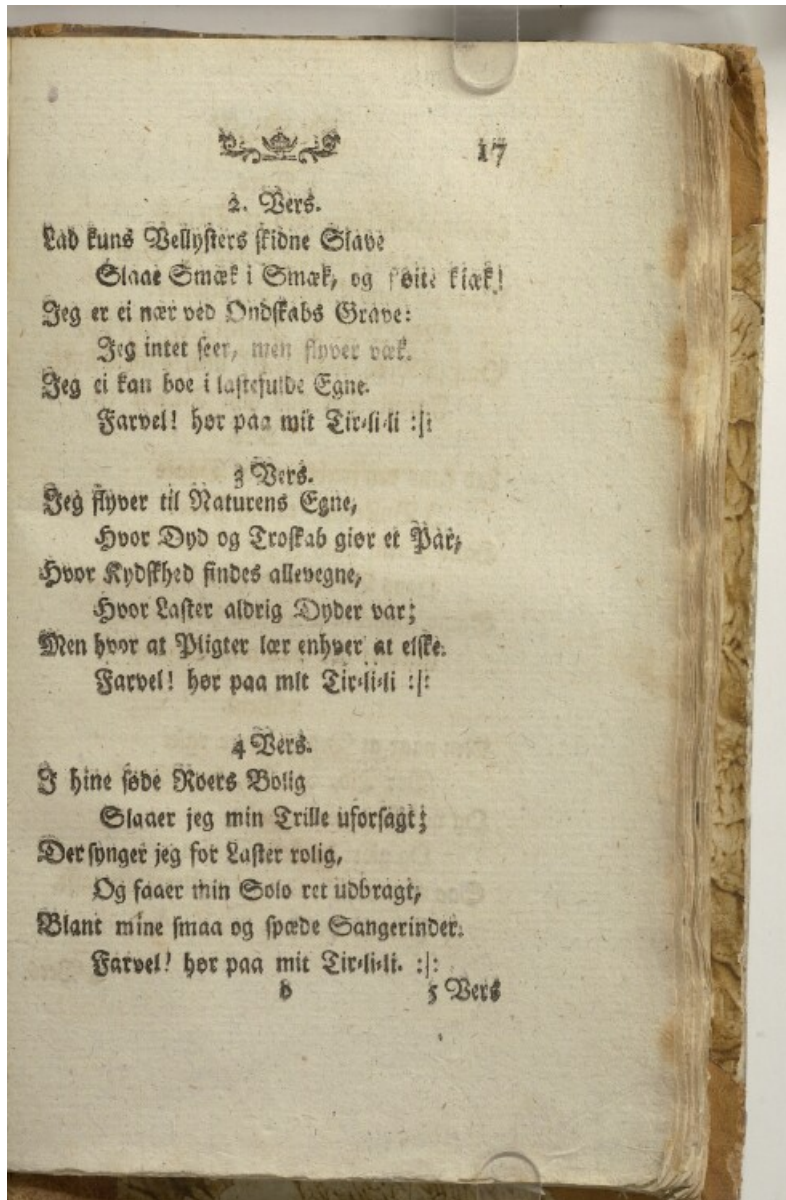 17
2. Vers.
Lad kuns Vellysters skidne Slave
Slaae Smæk i Smæk, og kiæk!
Jeg er ei nær ved Ondskabs Grave:
Jeg intet seer, men flyver væk.
Jeg ei kan boe i lastefulde Egne.
Farvel! hør paa mit Tir-li-li :|:
3 Vers.
Jeg flyver til Naturens Egne,
Hvor Dyd og Troskab giør et Par,
Hvor Kydskhed findes allevegne,
Hvor Laster aldrig Dyder var;
Men hvor at Pligter lær enhver at elske.
Farvel! hør paa mit Tir-li-li :|:
4 Vers.
I hine søde Roers Bolig
Slaaer jeg min Trille uforsagt;
Der synger jeg for Laster rolig,
Og faaer min Solo ret udbragt,
Blant mine smaa og spæde Sangerinder.
Farvel! hør paa mit Tir-li-li. :|:
b 5 Vers